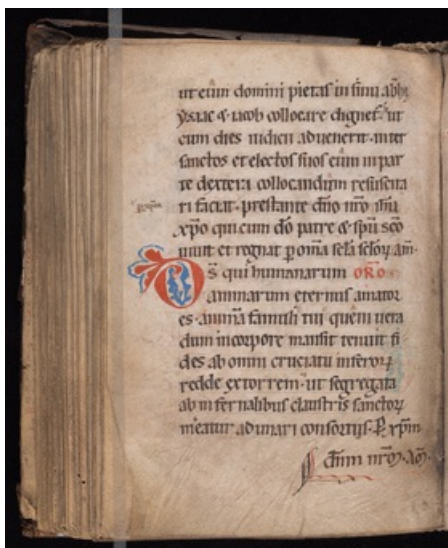 ut eum domini pietas in sinu abhe
ysaac & iacob collocare dignet᷑ ut
cum dies iudicii aduenerit inter
sanctos et electos suos eum in par
te dextera collocandum resuscita
ri faciat. prestante dño nro ihu
xpo qui cum dõ patre & spu sco
uiuit et regnat p oma scla scloꝝ am̃.
Ds̃ qui humanarum oro
animarum eternus amator
es. animã famuli tui quem uera
dum in corpore mansit tenuit fi
des ab omni cruciatu inferoꝝ
redde extorrem. ut segregata
ab infernalibus claustris sanctoꝝ
meatur adunari consortiis. P xp̃m
dñm nrm.